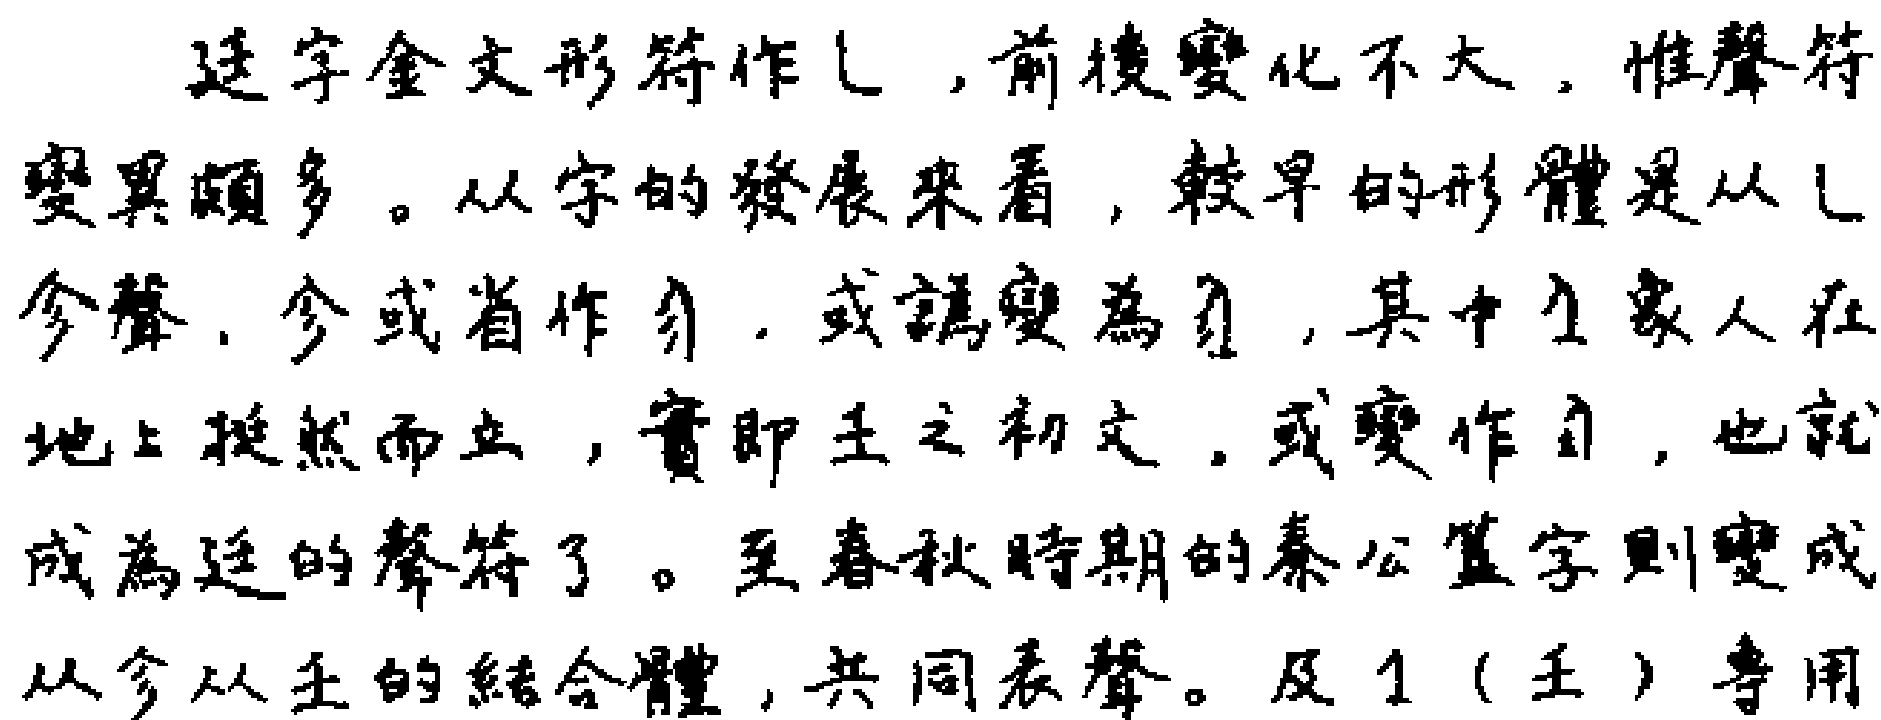 廷字金文形符作乚,前後變化不大.惟聲符
變異頗多。从字的發展來看,較早的形體是从乚
㐱聲.㐱或省作,或譌變為,其中象人在
地上挺然而立,實即𡈼之初文.或變作,也就
成為廷的聲符了。至春秋時期的秦公簋字則變成
从㐱从𡈼的結合體,共同表聲。及(𡈼)專用